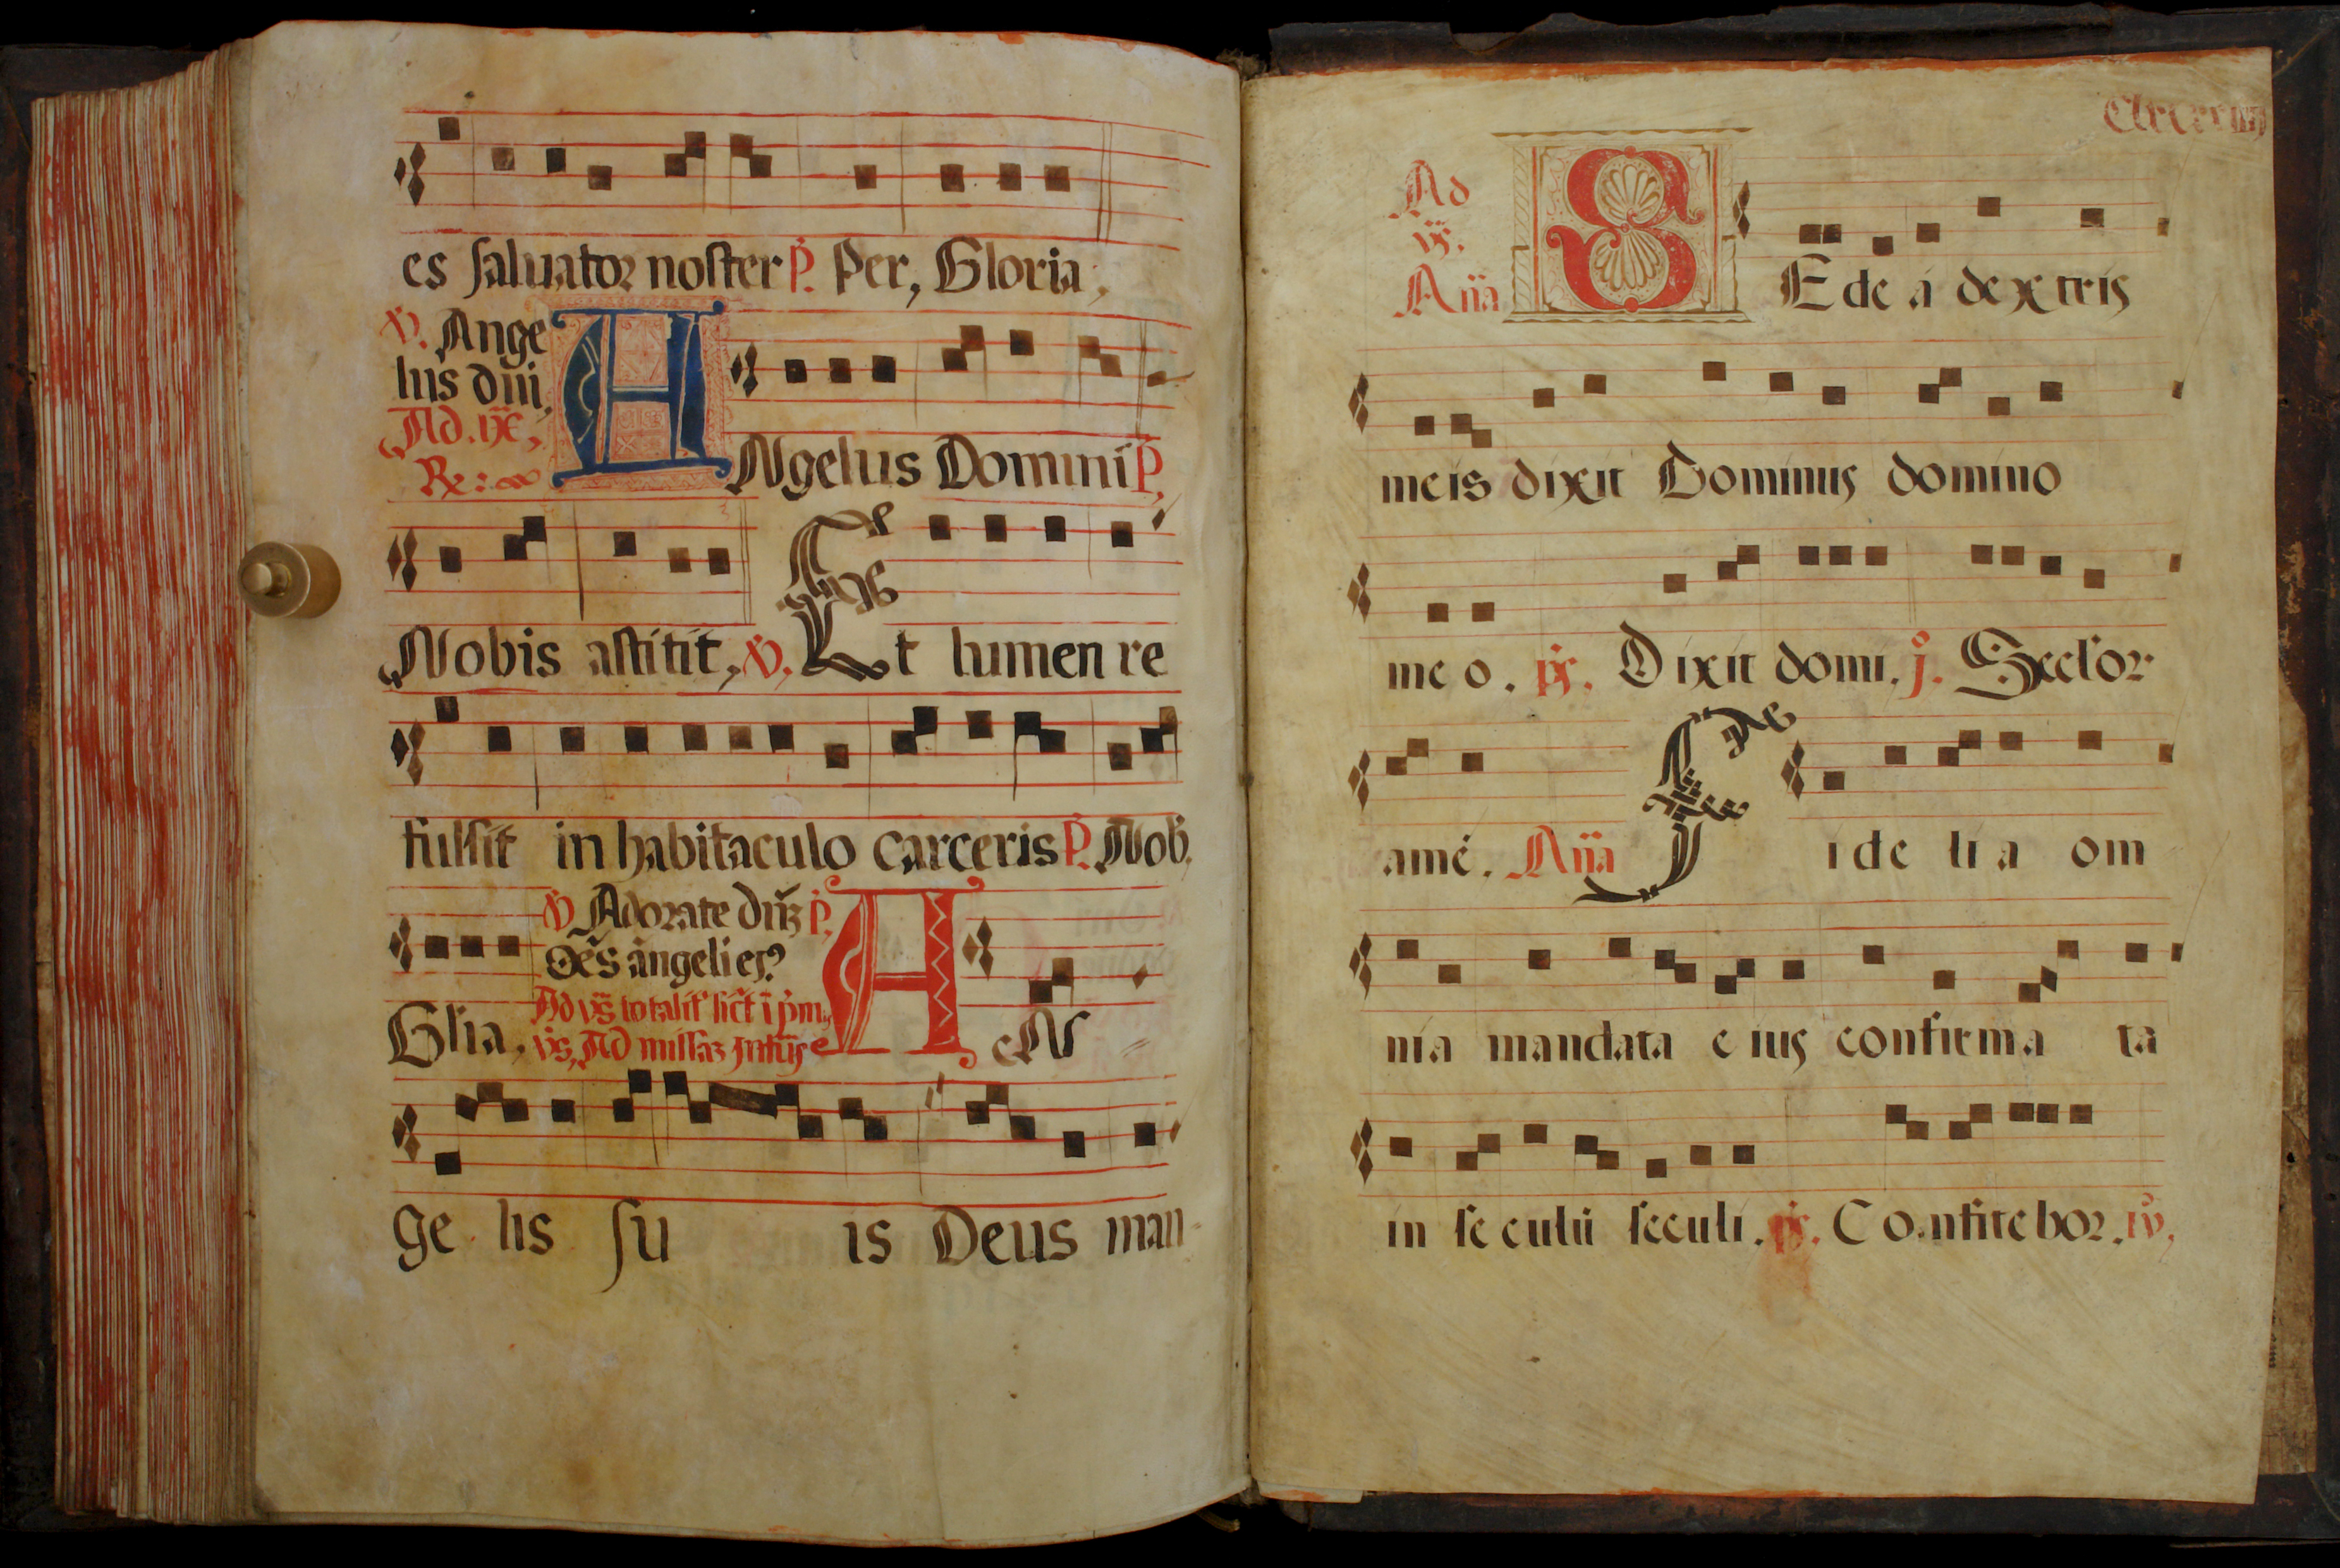 es saluator noster P. Per, Gloria,
V. Ange
lus dñi,
Ad. IXᵉ,
R:
ANgelus Domini P,
Nobis astitit, V. Et lumen re
fulsit in habitaculo carceris P. Nob.
V Adorate dñz P,
Oe͂s angeli eꝫ?
Glia,
Ad missaz
AN
ge lis su is Deus man-
Ad
Vs.
Aña
SEde á dextris
meis dixit Dominus domino
me o. ps. Dixit domi. j. Seclor
amé. Aña Fide li a om
nia mandata e ius confirma ta
in se culū seculi. ps. Confitebor.